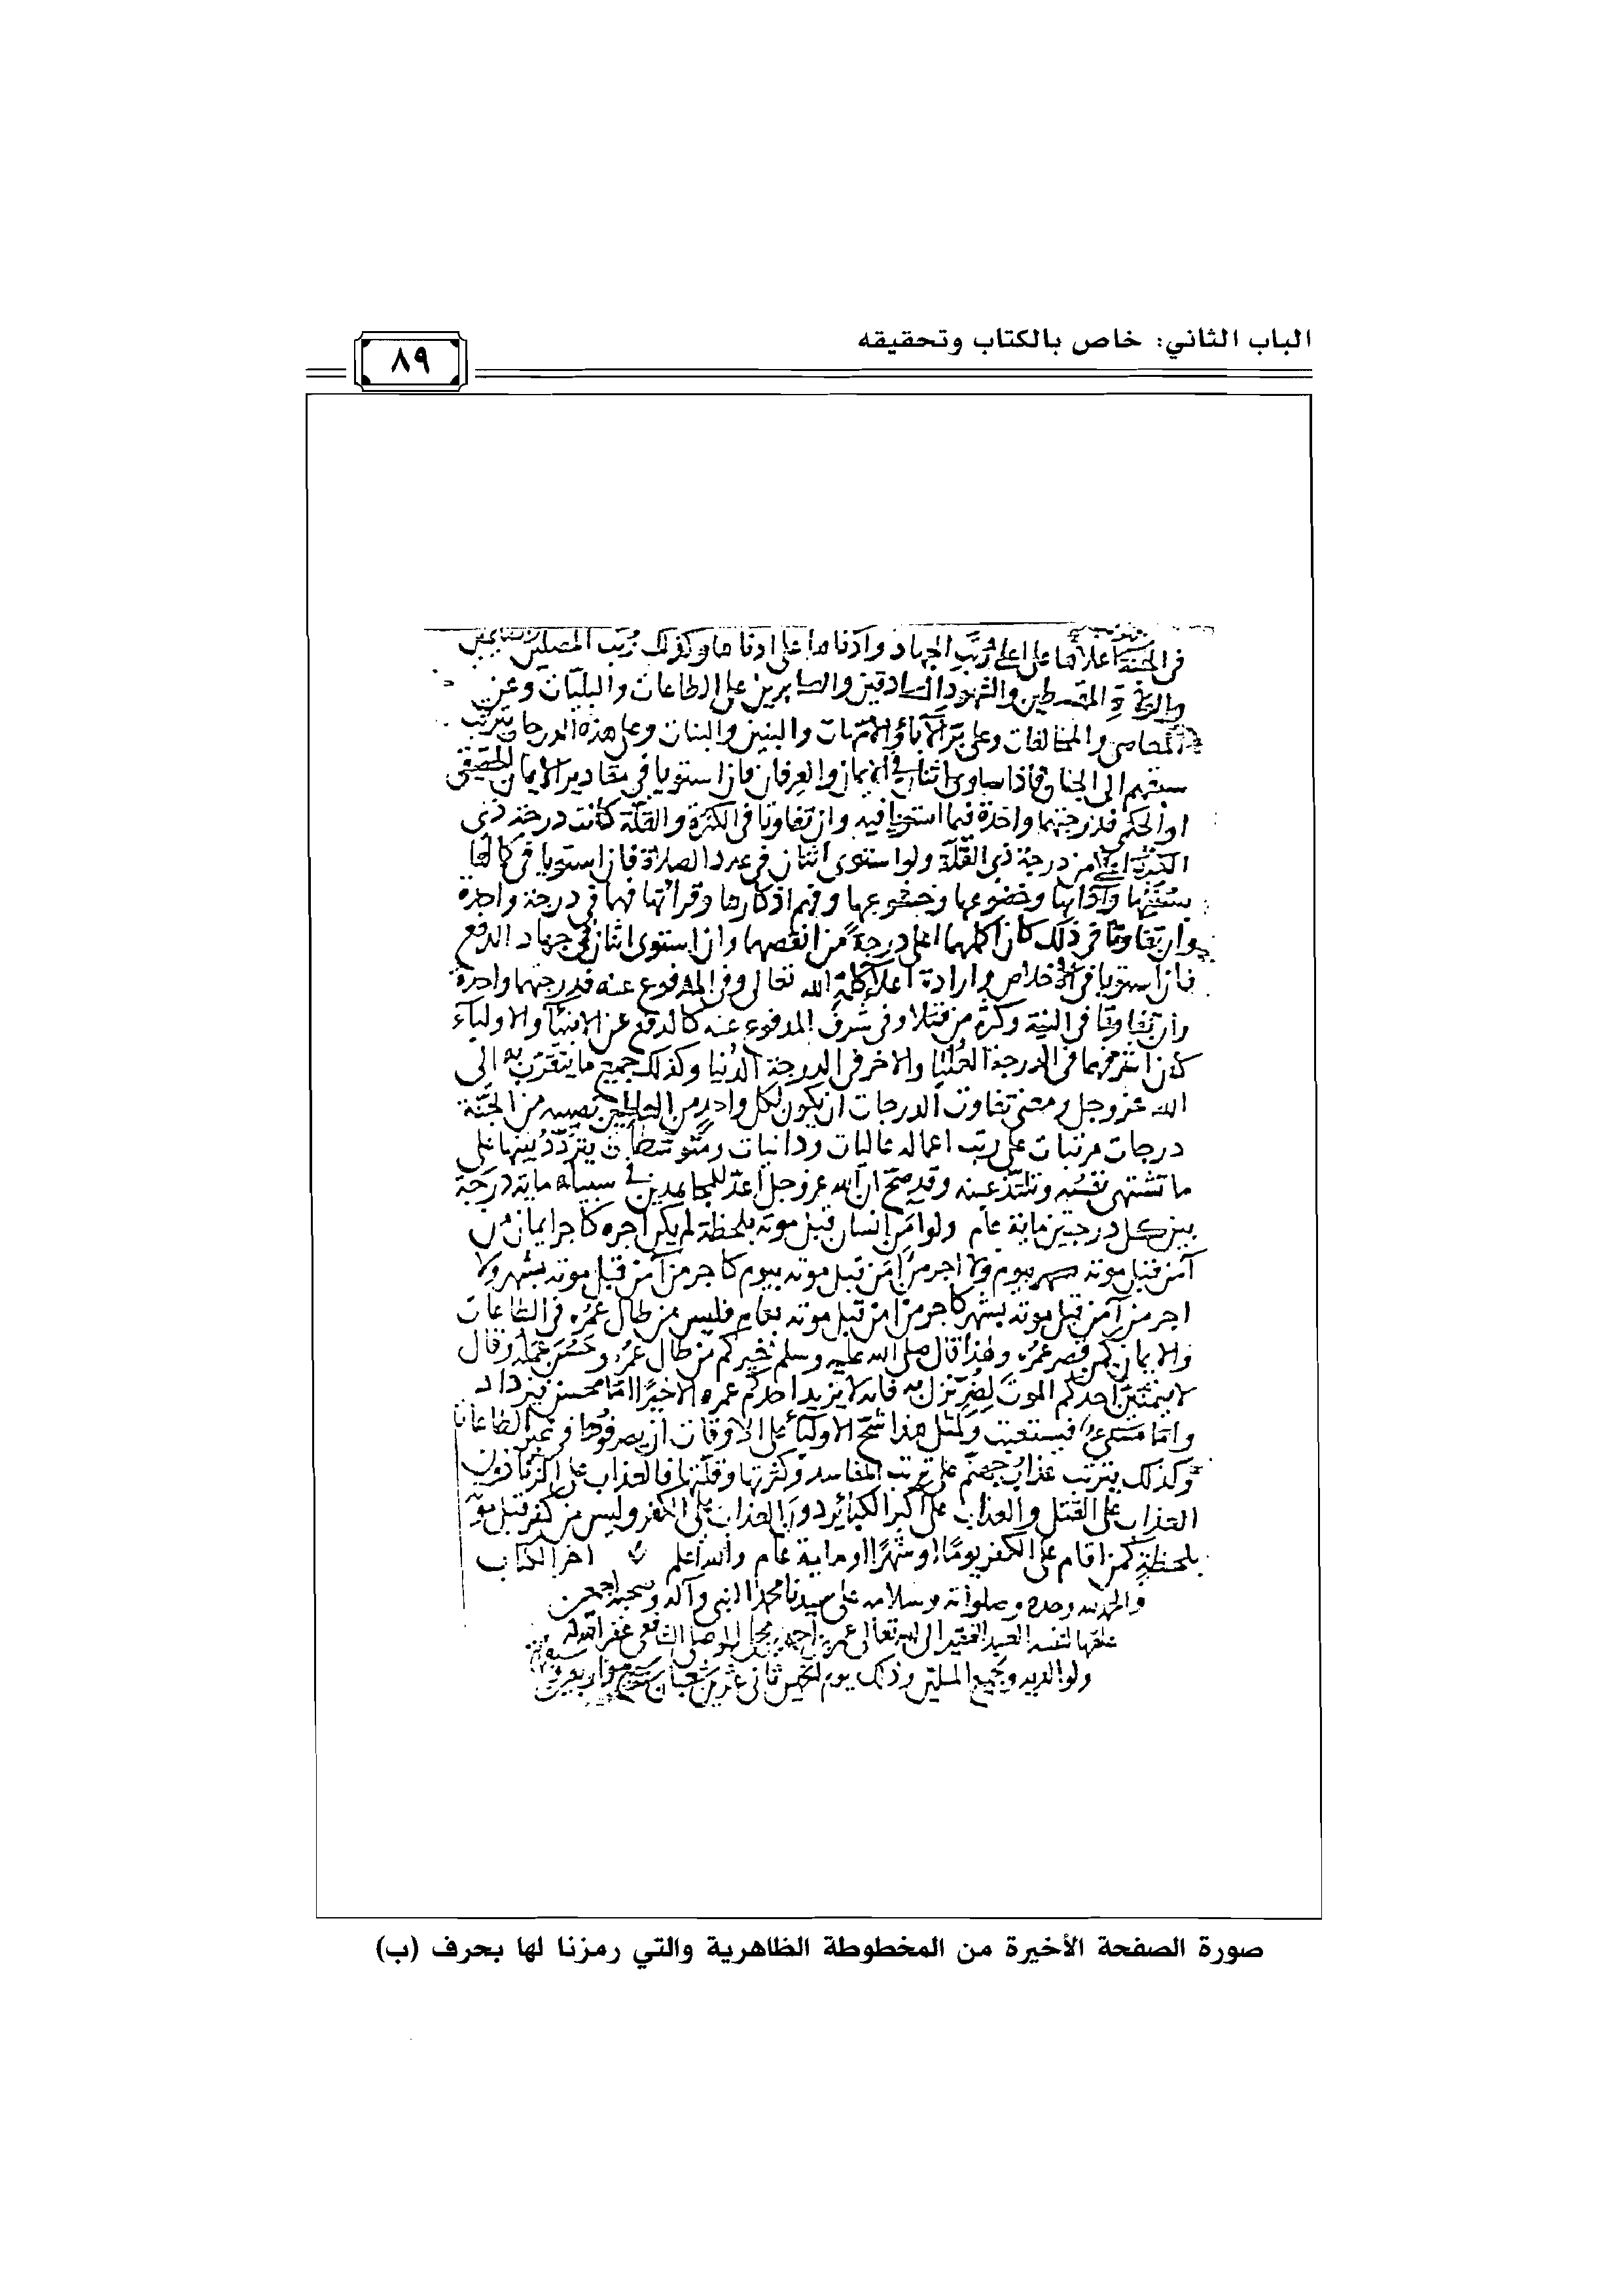 الباب الثاني: خاص بالكتاب وتحقيقه
٨٩
في الجنة اعلاها على اعلى رتب الجهاد وادناها على ادناها وكذلك رتب المصلين
المقسطين والشهود الصادقين والصابرين على الطاعات والبليات وعن
المعاصي والمخالفات وعلى بر الآباء والامهات والبنين والبنات وعلى هذه الدرجات يترتب
سبقهم الى الجنان فاذا ساوى اثنان في الايمان والعرفان فان استويا في مقادير الايمان الحقيقي
او الحكمي فدرجتهما واحدة فيما استويا فيه وان تفاوتا في الكثرة والقلة كانت درجة ذي
الكثرة من درجة ذي القلة ولو استوى اثنان في عدد الصلاة فان استويا في كمالها
بسننها وآدابها وخضوعها وخشوعها وفهم اذكارها وقرائتها فهما في درجة واحدة
وان تفاوتا في ذلك كان اكملهما اعلى درجة من انقصهما وان استوى اثنان في جهاد الدفع
فان استويا في الاخلاص وارادة اعلاء كلمة الله تعالى وفي المدفوع عنه فدرجتهما واحدة
وان تفاوتا في النية وكثرة من قتلا وفي شرف المدفوع عنه كالدفع عن الانبياء والاولياء
كان اشرفهما في الدرجة العليا والاخر في الدرجة الدنيا وكذلك جميع ما يتقرب به الى
الله عز وجل ومعنى تفاوت الدرجات ان يكون لكل واحد من العاملين نصيبه من الجنة
درجات مرتبات على رتب اعماله عاليات ودانيات ومتوسطات يتردد بينها على
ما تشتهي نفسه وتلتذ عينه وقد صح ان الله عز وجل اعد للمجاهدين في سبيله ماية درجة
بين كل درجتين ماية عام ولو امن انسان قبل موته بلحظة لم يكن اجره كاجر ايمان من
آمن قبل موته بيوم ولا اجر من آمن قبل موته بيوم كاجر من آمن قبل موته بشهر ولا
اجر من آمن قبل موته بشهر كاجر من امن قبل موته بعام فليس من طال عمره في الطاعات
والايمان كمن قصر عمره ولهذا قال صلى الله عليه وسلم خيركم من طال عمره وحسن عمله وقال
لا يتمنين احدكم الموت لضر نزل به فانه لا يزيد احدكم عمره الا خيرا اما محسن فيزداد
واما مسيء فيستعتب ولمثل هذا شح الاولياء على الاوقات ان يصرفوها في غير الطاعات
وكذلك يترتب عذاب جهنم على رتب المفاسد وكثرتها وقلتها فالعذاب على الزنا دون
العذاب على القتل والعذاب على اكبر الكبائر دون العذاب على الكفر وليس من كفر قبل موته
بلحظة كمن اقام على الكفر يوما او شهرا او ماية عام والله اعلم اخر الكتاب
والحمد لله وحده وصلواته وسلامه على سيدنا محمد النبي وآله وصحبه اجمعين
علقها لنفسه العبد الفقير الى الله تعالى عمر بن احمد الموصلي الشافعي غفر الله له
ولوالديه ولجميع المسلمين وذلك يوم الخميس ثاني عشر من شعبان
صورة الصفحة الأخيرة من المخطوطة الظاهرية والتي رمزنا لها بحرف (ب)